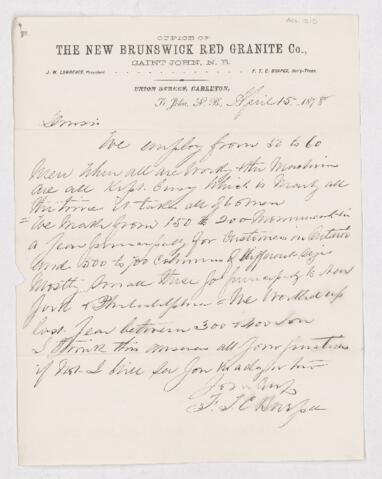 OFFICE OF
THE NEW BRUNSWICK RED GRANITE Co.,
SAINT JOHN, N. B.
J. W. LAWRENCE, President F. T. C. BURPEE, Secy-Treas.
UNION STREET, CARLETON,
St. John, N. B., April 15 1878
We employ from 50 to 60
Men When all are work & the Machines
are all Kept Going Which is Nearly all
the time It takes all of 60 men
We Make from 150 to 200 Monuments in
a year principally for Customers in Ontario
And 500 to 700 Columns of different
Mostly Small these go principally to New
York & Philadelphia We Worked up
Last Year between 300 & 400 Ton
I think this answers all your questions
if Not I Will
Yours truly
F. T. C. Burpee